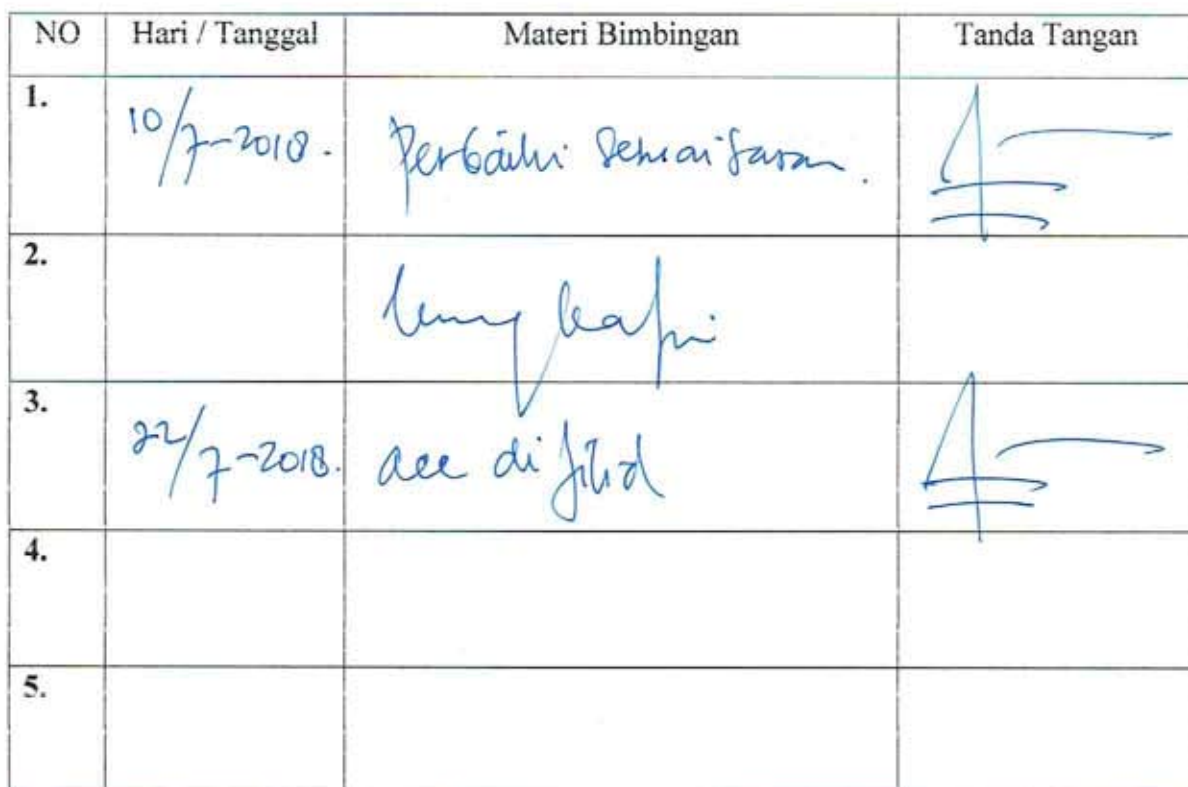 NO Hari / Tanggal Materi Bimbingan Tanda Tangan
1. 10/7-2018. Perbaiki sesuai saran.
2.
3. 22/7-2018. acc di jilid
4.
5.